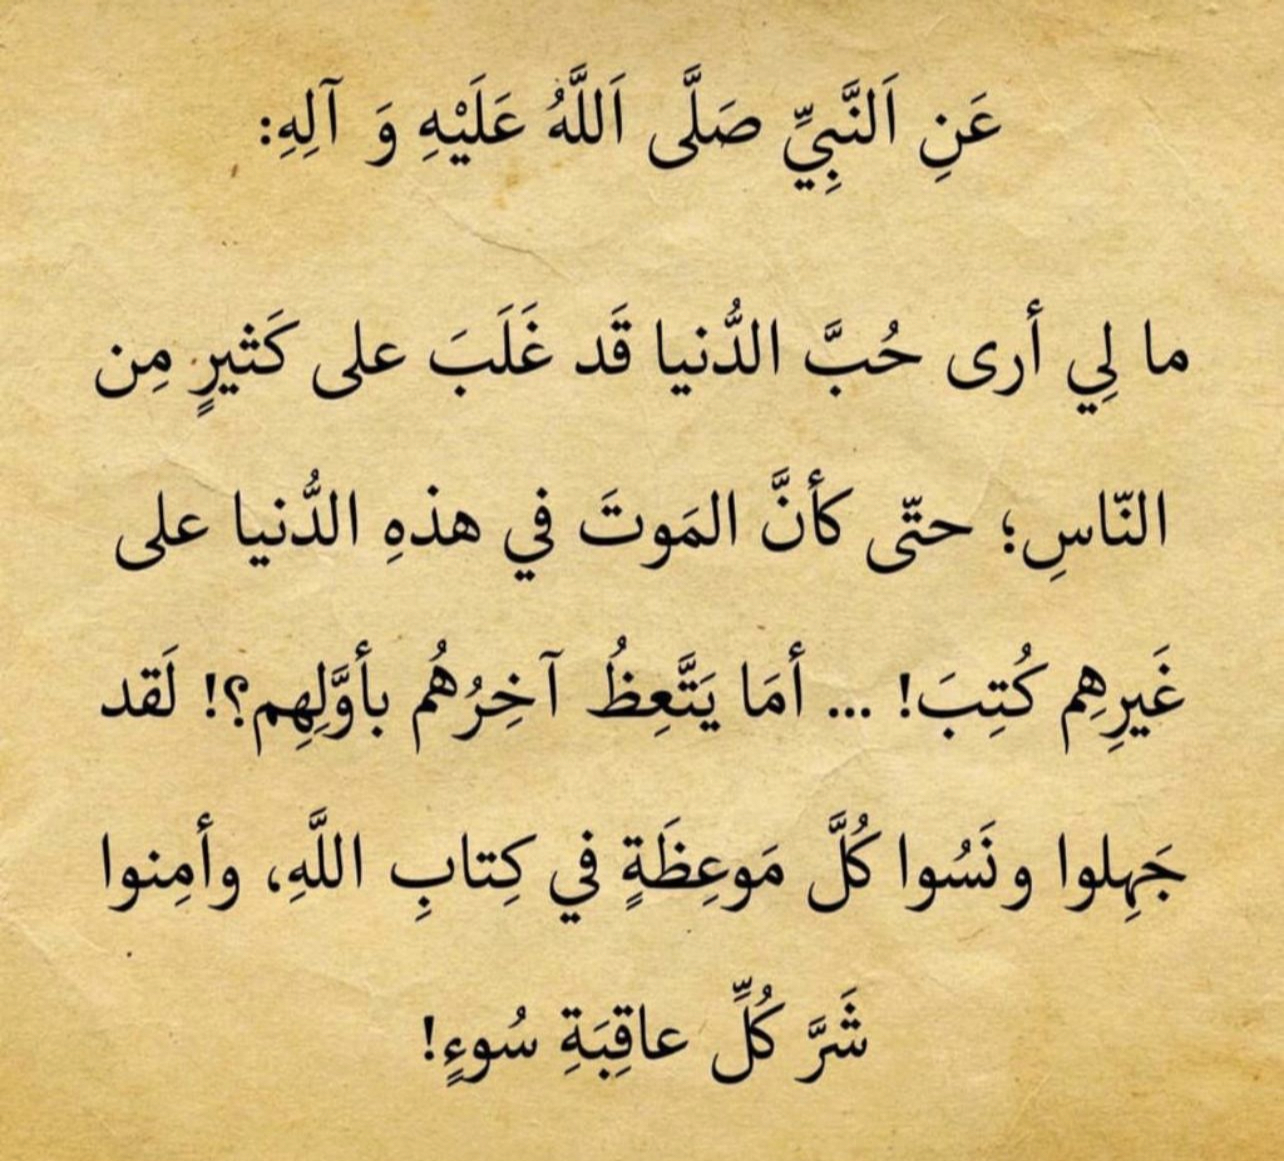 عَنِ اَلنَّبِيِّ صَلَّى اَللَّهُ عَلَيْهِ وَ آلِهِ:
ما لِي أرى حُبَّ الدُّنيا قَد غَلَبَ على كَثيرٍ مِن
النّاسِ؛ حتّى كأنَّ المَوتَ في هذهِ الدُّنيا على
غَيرِهِم كُتِبَ! ... أمَا يَتَّعِظُ آخِرُهُم بأوَّلِهِم؟! لَقد
جَهِلوا ونَسُوا كُلَّ مَوعِظَةٍ في كِتابِ اللَّهِ، وأمِنوا
شَرَّ كُلِّ عاقِبَةِ سُوءٍ!